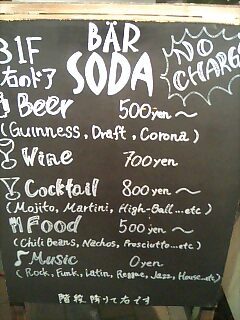 BÄR
SODA
B1F
右のドア
NO
CHARG
Beer 500yen～
(Guinness, Draft, Corona)
Wine 700yen
Cocktail 800yen～
(Mojito, Martini, High-Ball...etc)
Food 500yen～
(Chili Beans, Nachos, Prosciutto...etc)
♪Music 0yen
(Rock, Funk, Latin, Reggae, Jazz, House...etc)
階段降りて右です